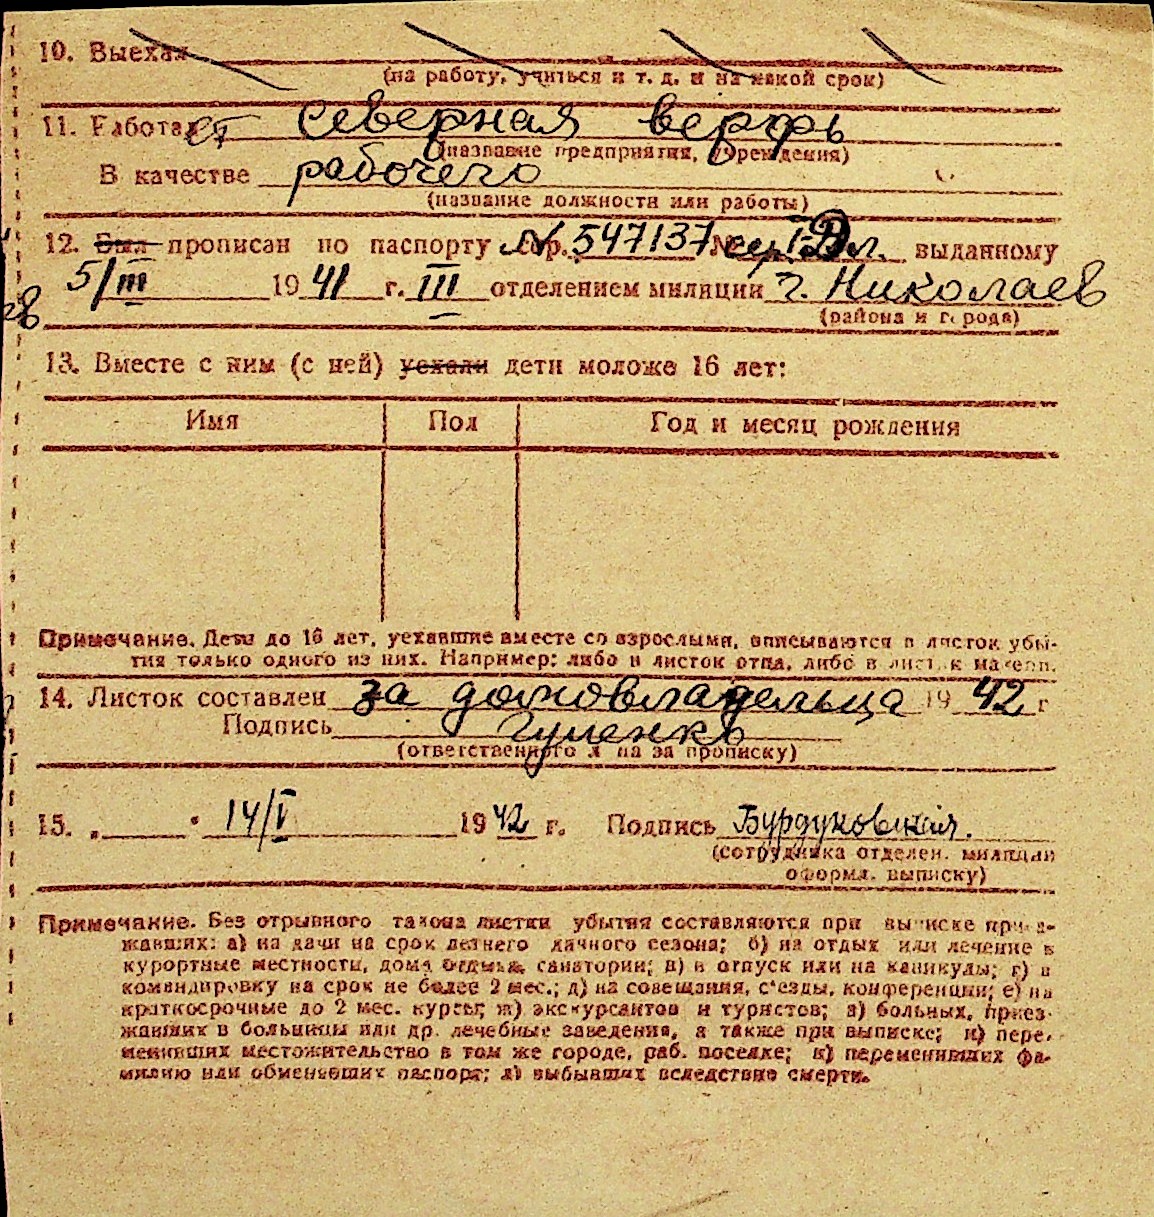 10. Выехал
(на работу, учиться и т. д. и на какой срок)
11. Работает Северная верфь
(название предприятия, учреждения)
В качестве рабочего
(название должности или работы)
12. Был прописан по паспорту № 547137 сер. выданному
5/III 1941 г. III отделением милиции г. Николаев
(района и города)
13. Вместе с ним (с ней) уехали дети моложе 16 лет:
Имя Пол Год и месяц рождения
Примечание. Дети до 16 лет, уехавшие вместе со взрослыми, вписываются в листок убы-
тия только одного из них. Например: либо в листок отца, либо в листок матери.
14. Листок составлен за домовладельца 1942 г
Подпись Гуленко
(ответственного лица за прописку)
15. „ " 14/V 1942 г. Подпись Бурдуковская.
(сотрудника отделен. милиции
оформл. выписку)
Примечание. Без отрывного талона листки убытия составляются при выписке приез-
жавших: а) на дачи на срок летнего дачного сезона; б) на отдых или лечение в
курортные местности, дома отдыха, санатории; в) в отпуск или на каникулы; г) в
командировку на срок не более 2 мес.; д) на совещания, съезды, конференции; е) на
краткосрочные до 2 мес. курсы; ж) экскурсантов и туристов; з) больных, приез-
жавших в больницы или др. лечебные заведения, а также при выписке; и) пере-
менивших местожительство в том же городе, раб. поселке; к) переменивших фа-
милию или обменявших паспорт; л) выбывших вследствие смерти.